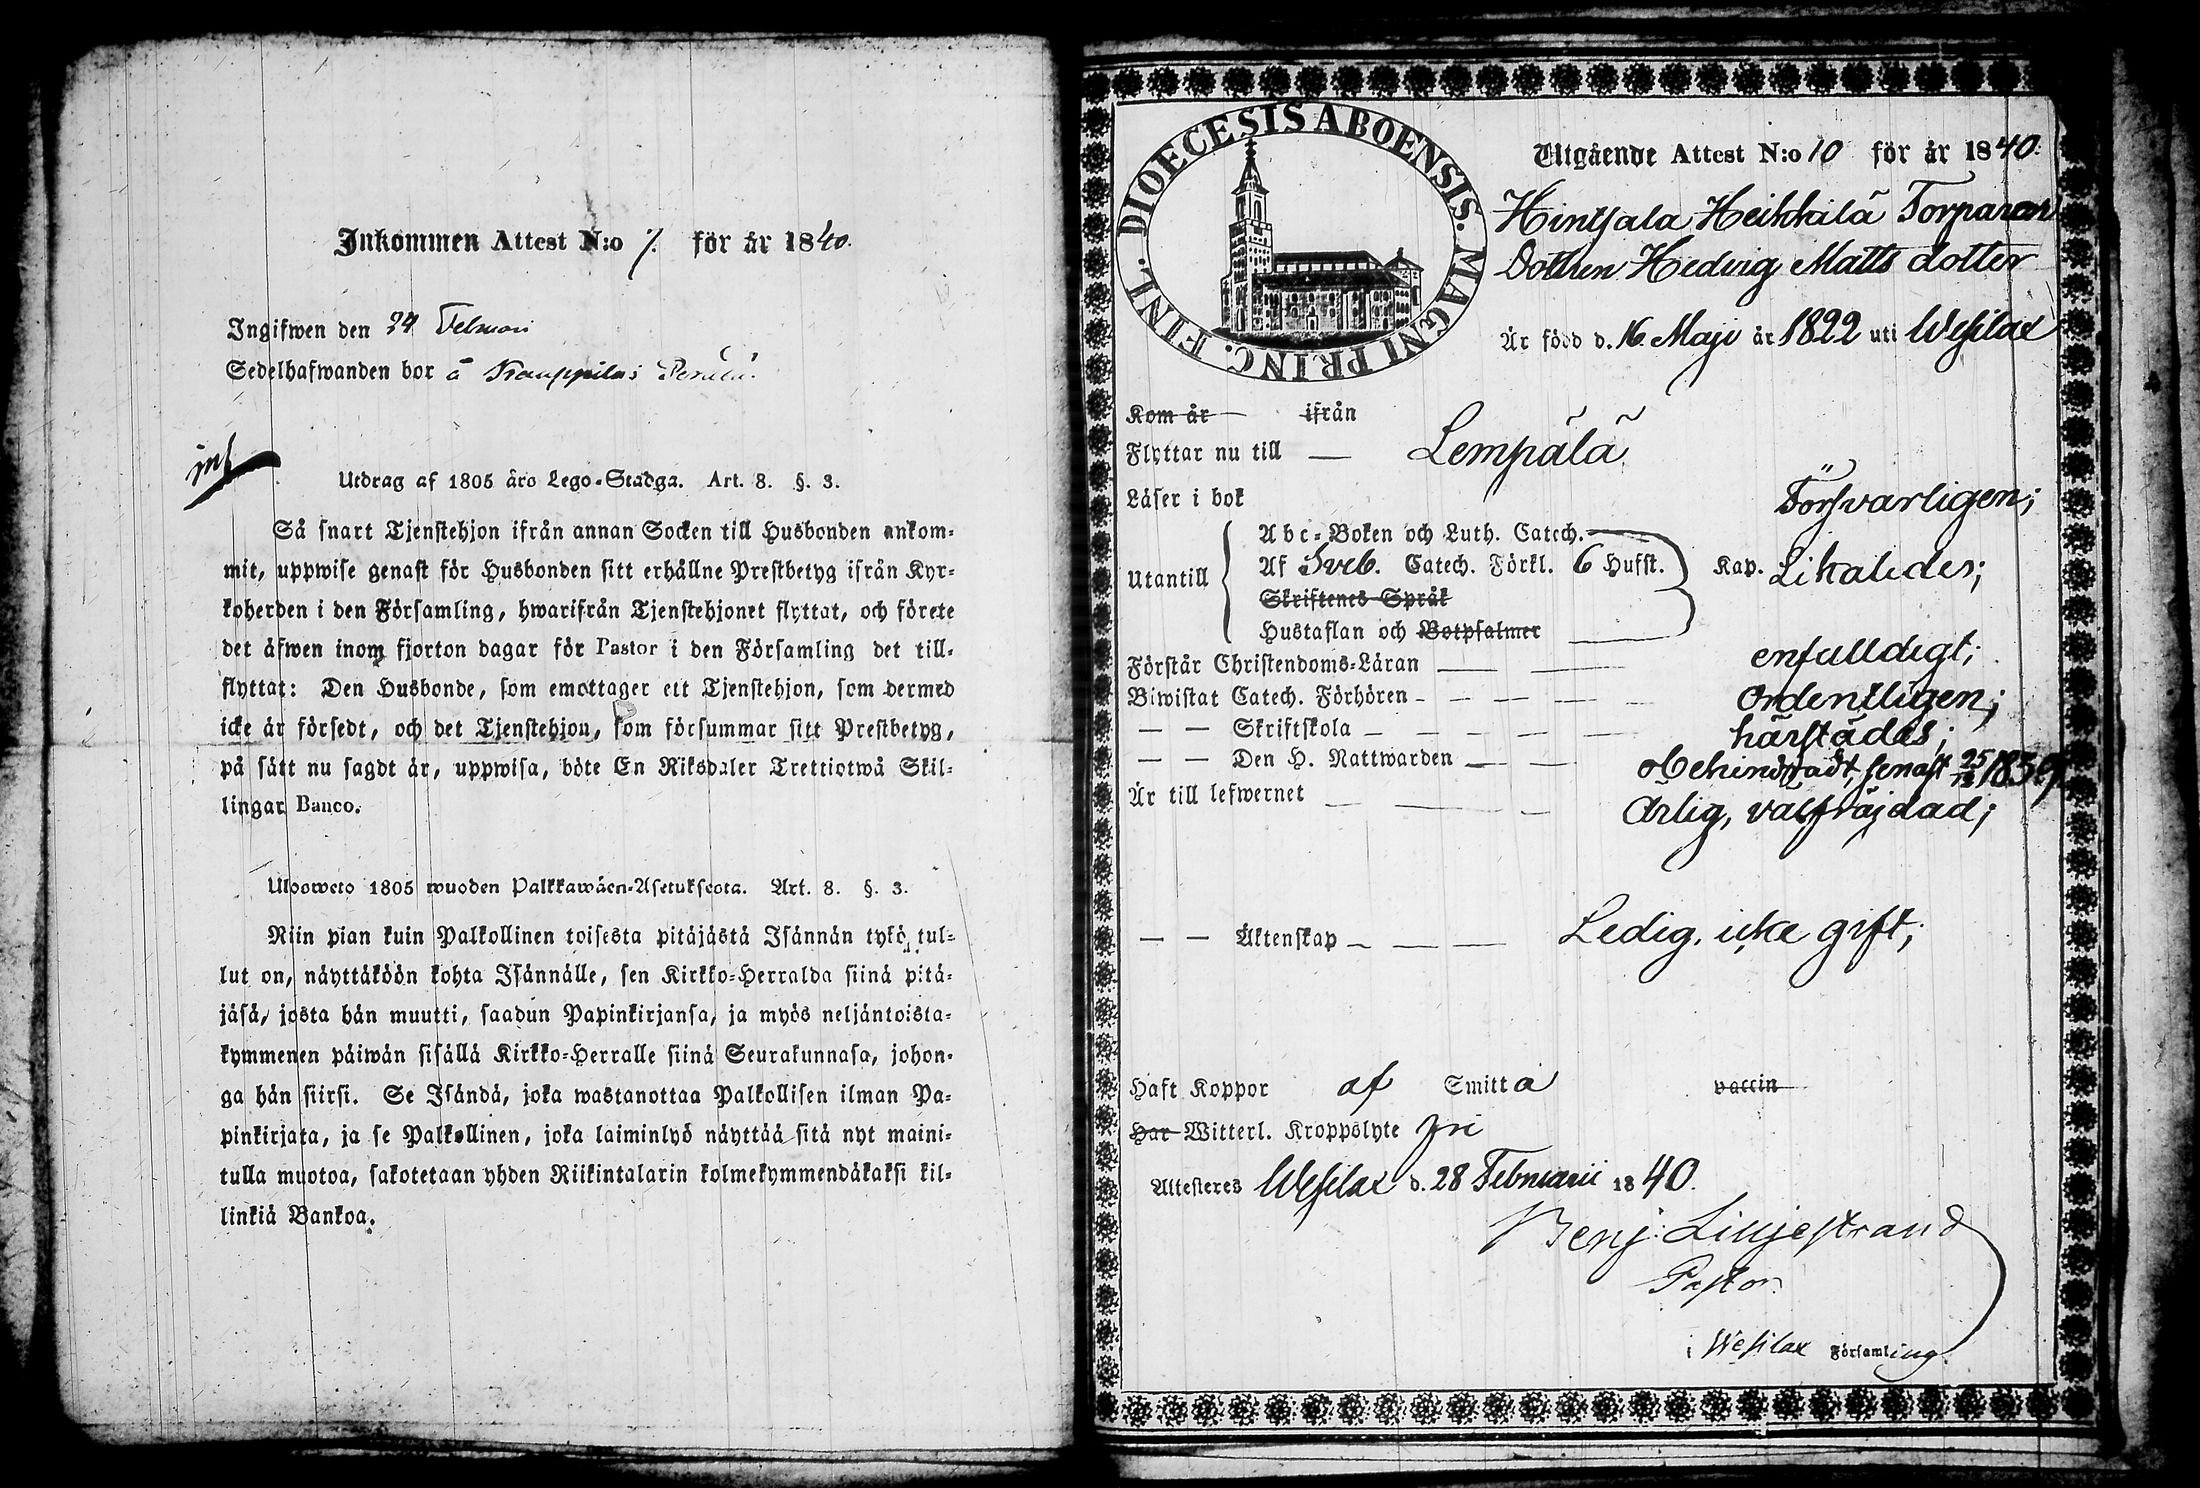 Inkommen Attest N:o 7. för år 1840.
Ingifwen den Februari
Sedelhafwanden bor å
Utdrag af 1805 års Lego-Stadga. Art. 8. §. 3.
Så snart Tjenstehjon ifrån annan Socken till Husbonden ankom-
mit, uppwise genast för Husbonden sitt erhållne Prestbetyg ifrån Kyr-
koherden i den Församling, hwarifrån Tjenstehjonet flyttat, och förete
det äfwen inom fjorton dagar för Pastor i den Församling det till-
flyttat: Den Husbonde, som emottager ett Tjenstehjon, som dermed
icke är försedt, och det Tjenstehjon, som försummar sitt Prestbetyg,
på sätt nu sagdt är, uppwisa, böte En Riksdaler Trettiotwå Skil-
lingar Banco.
Uloosweto 1805 wuoden Palkkawäen-Asetuksesta. Art. 8. §. 3.
Niin pian kuin Palkollinen toisesta pitäjästä Isännän tykö tul-
lut on, näyttäköön kohta Isännälle, sen Kirkko-Herralda siinä pitä-
jäsä, josta hän muutti, saadun Papinkirjansa, ja myös neljäntoista-
kymmenen päiwän sisällä Kirkko-Herralle siinä Seurakunnasa, johon-
ga hän siirsi. Se Isändä, joka wastanottaa Palkollisen ilman Pa-
pinkirjata, ja se Palkollinen, joka laiminlyö näyttää sitä nyt maini-
tulla muotoa, sakotetaan yhden Riikintalarin kolmekymmendäkaksi kil-
linkiä Bankoa.
DIOECESIS ABOENSIS. MAGNI PRINC. FINL.
Utgående Attest N:o 10 för år 1840.
Hinsala Heikkilä Torparen
Dottren Hedvig Matts dotter
Är född d. 16. Maji år 1822 uti Wesilax
Kom år ifrån
Flyttar nu till Lempälä
Läser i bok Försvarligen;
Utantill
Abc-Boken och Luth. Catech.
Af Sveb. Catech. Förkl. 6 Hufst. Kap. Likaledes;
Skriftenes Språk
Hustaflan och Botpsalmer
Förstår Christendoms-Läran enfalldigt;
Biwistat Catech. Förhören ordentligen;
— — Skriftskola härstädes;
— — Den H. Nattwarden obehindradt, senast 25/12 1839
Är till lefwernet Ärlig, välfräjdad;
— — Äktenskap Ledig, icke gift;
Haft Koppor af Smitta vaccin
Har Witterl. Kroppslyte fri
Attesteres Wesilax d. 28 Februarii 1840.
Benj: Liljestrand
Pastor
i Wesilax Församling.